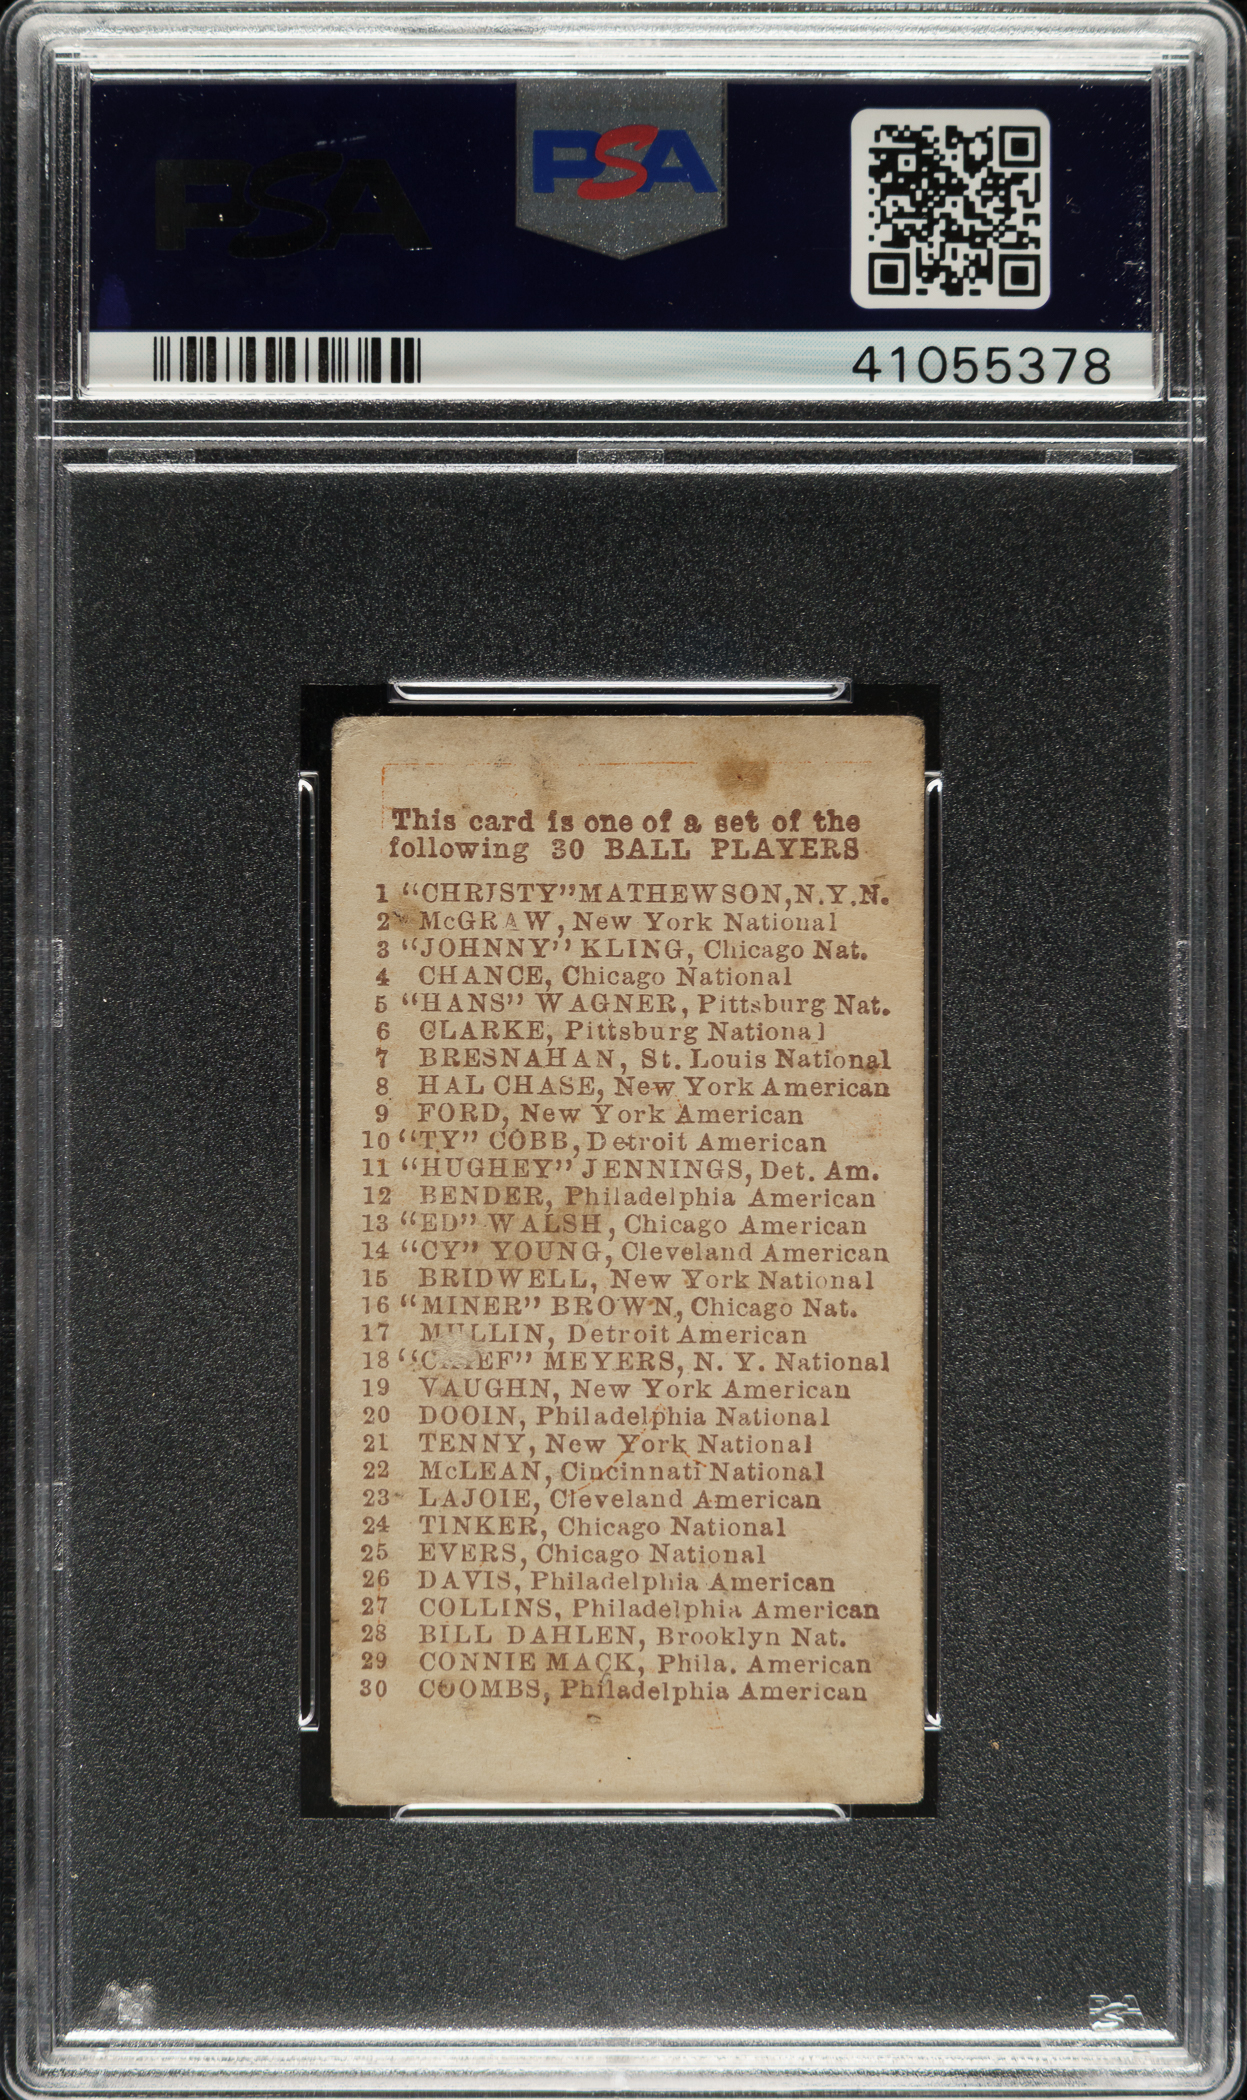 PSA
PSA
41055378
This card is one of a set of the
following 30 BALL PLAYERS
1 “CHRISTY” MATHEWSON, N.Y.N.
2 McGRAW, New York National
3 “JOHNNY” KLING, Chicago Nat.
4 CHANCE, Chicago National
5 “HANS” WAGNER, Pittsburg Nat.
6 CLARKE, Pittsburg National
7 BRESNAHAN, St. Louis National
8 HAL CHASE, New York American
9 FORD, New York American
10 “TY” COBB, Detroit American
11 “HUGHEY” JENNINGS, Det. Am.
12 BENDER, Philadelphia American
13 “ED” WALSH, Chicago American
14 “CY” YOUNG, Cleveland American
15 BRIDWELL, New York National
16 “MINER” BROWN, Chicago Nat.
17 MULLIN, Detroit American
18 “CHIEF” MEYERS, N. Y. National
19 VAUGHN, New York American
20 DOOIN, Philadelphia National
21 TENNY, New York National
22 McLEAN, Cincinnati National
23 LAJOIE, Cleveland American
24 TINKER, Chicago National
25 EVERS, Chicago National
26 DAVIS, Philadelphia American
27 COLLINS, Philadelphia American
28 BILL DAHLEN, Brooklyn Nat.
29 CONNIE MACK, Phila. American
30 COOMBS, Philadelphia American
PSA